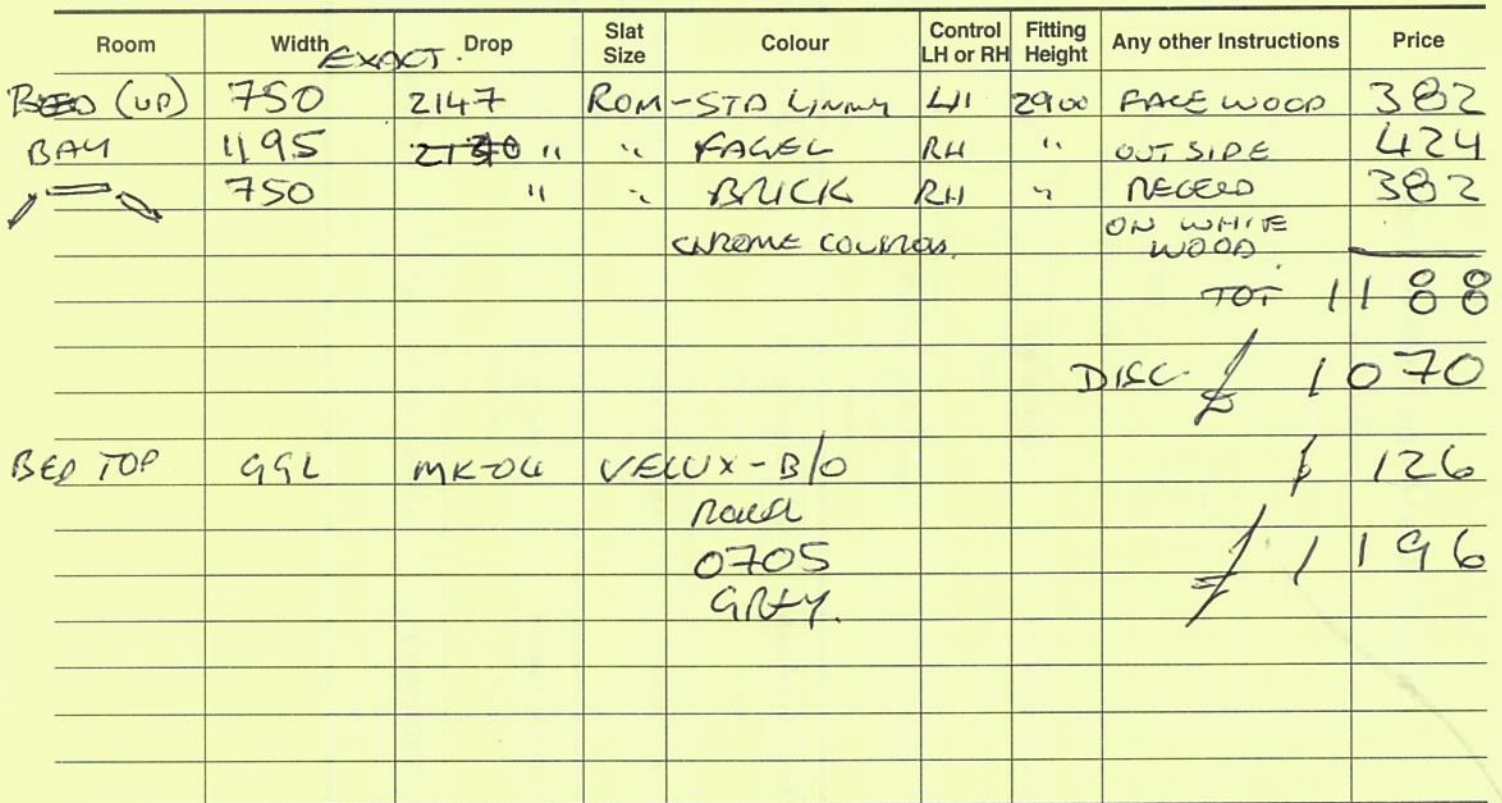 Room Width Drop Slat Size Colour Control LH or RH Fitting Height Any other Instructions Price
EXACT.
BED (UP) 750 2147 ROM-STD LINING LH 2900 FACE WOOD 382
BAY 1195 " " FAGEL RH " OUT SIDE 424
750 " " BRICK RH " RECESS 382
CHROME CONTROL. ON WHITE
WOOD
TOT 1188
DISC £ 1070
BED TOP GGL MK-04 VELUX - B/O £ 126
ROLLER
0705 £ 1196
GREY.